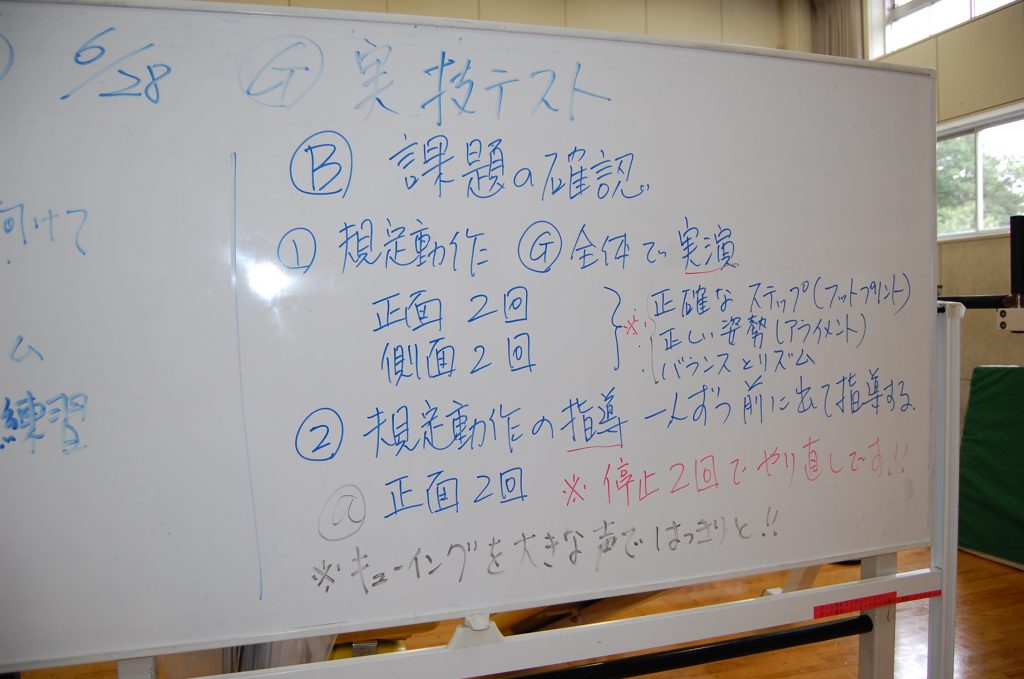 6/28 Ⓖ 実技テスト
Ⓑ 課題の確認
① 規定動作 Ⓖ全体で実演
正面 2回
側面 2回
※
・正確なステップ(フットプリント)
・正しい姿勢(アライメント)
・バランスとリズム
② 規定動作の指導 一人ずつ前に出て指導する。
ⓐ 正面 2回 ※停止2回でやり直しです!!
※キューイングを大きな声ではっきりと!!
向けて
ム
練習